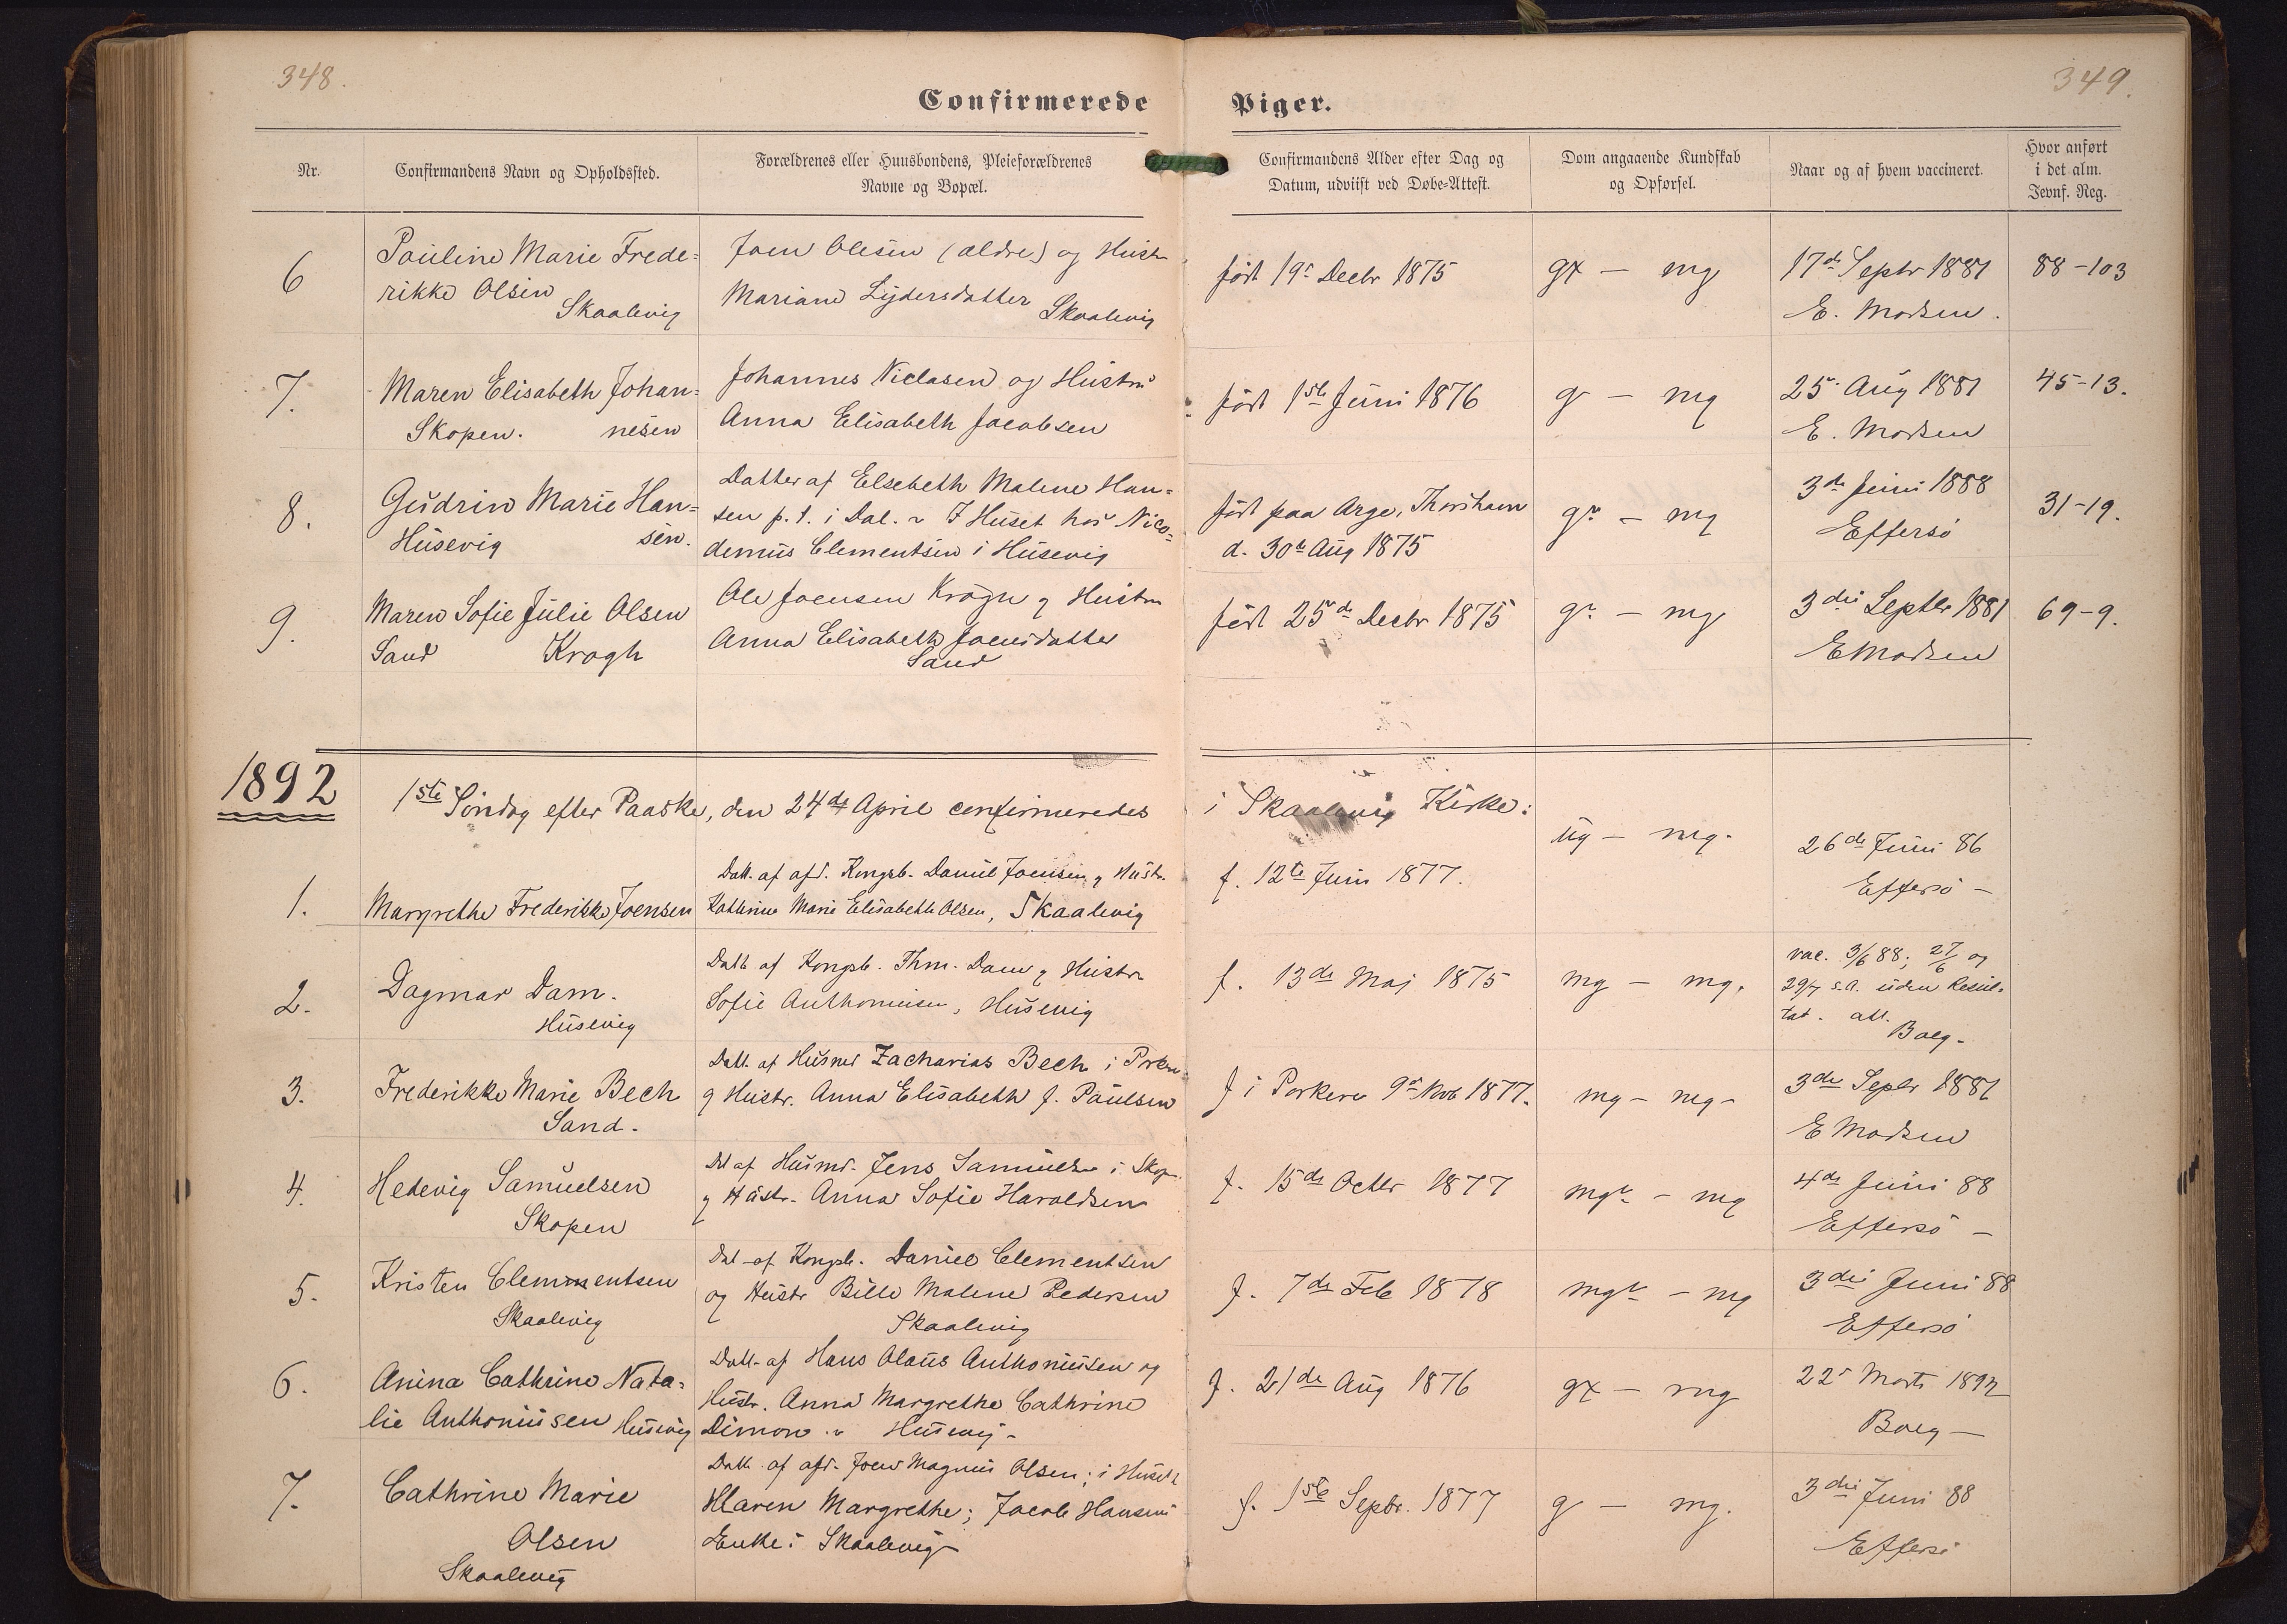 348.
349.
Confirmerede Piger.
Nr.
Confirmandens Navn og Opholdssted.
Forældrenes eller Huusbondens, Pleieforældrenes
Navne og Bopæl.
Confirmandens Alder efter Dag og
Datum, udviist ved Døbe-Attest.
Dom angaaende Kundskab
og Opførsel.
Naar og af hvem vaccineret.
Hvor anført
i det alm.
Jevnf. Reg.
6
Pauline Marie Frede=
rikke Olsen
Skaalevig
Joen Olesen (ældre) og Hustr
Mariane Lydersdatter
Skaalevig
født 19r Decbr 1875
gx — mg
17de Septbr 1881
E. Madsen.
88-103
7.
Maren Elisabeth Johan=
Skopen. nesen
Johannes Niclasen og Hustru
Anna Elisabeth Jacobsen
født 1ste Juni 1876
g — mg
25. Aug 1881
E. Madsen
45-13.
8.
Gudrun Marie Han=
Husevig sen.
Datter af Elsebeth Malene Han=
sen p.t. i Dal. I Huset hos Nico=
demus Clementsen i Husevig
født paa Arge, Thorshavn
d. 30te Aug 1875
g — mg
3de Juni 1888
Effersö
31-19.
9.
Maren Sofie Julie Olsen
Sand Krogh
Ole Joensen Krogh og Hustru
Anna Elisabeth Joensdatter
Sand
født 25de Decbr 1875
g — mg
3die Septbr 1881
E Madsen
69-9.
1892
1ste Søndag efter Paaske, den 24de April confirmeredes i Skaalevig Kirke:
1.
Margrethe Frederikke Joensen
Datt. af afd. Kongsb. Daniel Joensen og Hustr.
Kathrine Marie Elisabeth Olsen, Skaalevig
f. 12te Juni 1877.
ug — mg.
26de Juni 86
Effersö —
2.
Dagmar Dam.
Husevig
Datt af Kongsb. Thm. Dam og Hustr.
Sofie Anthoniusen, Husevig
f. 13de Maj 1875
mg — mg.
vac. 3/6 88; 27/6 og
29/7 s.A. uden Resul=
tat. att.
Boeg.
3.
Frederikke Marie Bech
Sand.
Datt. af Husmd Zacharias Bech i Porkere
og Hustr. Anna Elisabeth f. Paulsen
f i Porkere 9de Nvb 1877.
mg — mg —
3de Septbr 1881
E Madsen
4.
Hedevig Samuelsen
Skopen
Dt af Husmd. Jens Samuelsen i Skopen
og Hustr. Anna Sofie Haraldsen
f. 15de Octbr 1877
mg — mg
4de Juni 88
Effersö —
5.
Kristen Clementsen
Skaalevig
Dat af Kongsb. Daniel Clementsen
og Hustr Bille Malene Pedersen
Skaalevig
f. 7de Feb 1878
mg — mg
3die Juni 88
Effersö
6.
Anina Cathrine Nata=
lie Anthoniusen Husevig
Datt. af Hans Olaus Anthoniusen og
Hustr. Anna Margrethe Cathrine
Dimon. Husevig —
f. 21de Aug 1876
gx — mg
22r Marts 1892
Boeg —
7.
Cathrine Marie
Olsen
Skaalevig
Datt. af afd. Joen Magnus Olsen; i Huset
Maren Margrethe; Jacob Hansens
Enke i Skaalevig
f. 1ste Septbr. 1877
g — mg.
3die Juni 88
Effersö